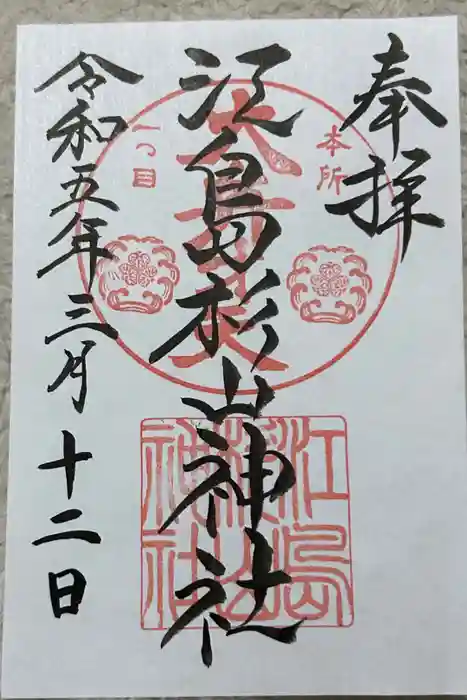 奉拝
本所
一つ目
江島杉山神社
江島杉山神社
令和五年三月十二日